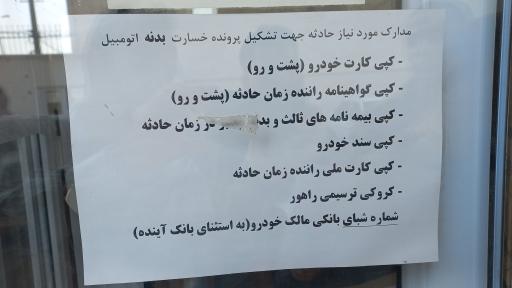 مدارک مورد نیاز حادثه جهت تشکیل پرونده خسارت بدنه اتومبیل
- کپی کارت خودرو (پشت و رو)
- کپی گواهینامه راننده زمان حادثه (پشت و رو)
- کپی بیمه نامه های ثالث و در زمان حادثه
- کپی سند خودرو
- کپی کارت ملی راننده زمان حادثه
- کروکی ترسیمی راهور
شماره شبای بانکی مالک خودرو(به استثنای بانک آینده)